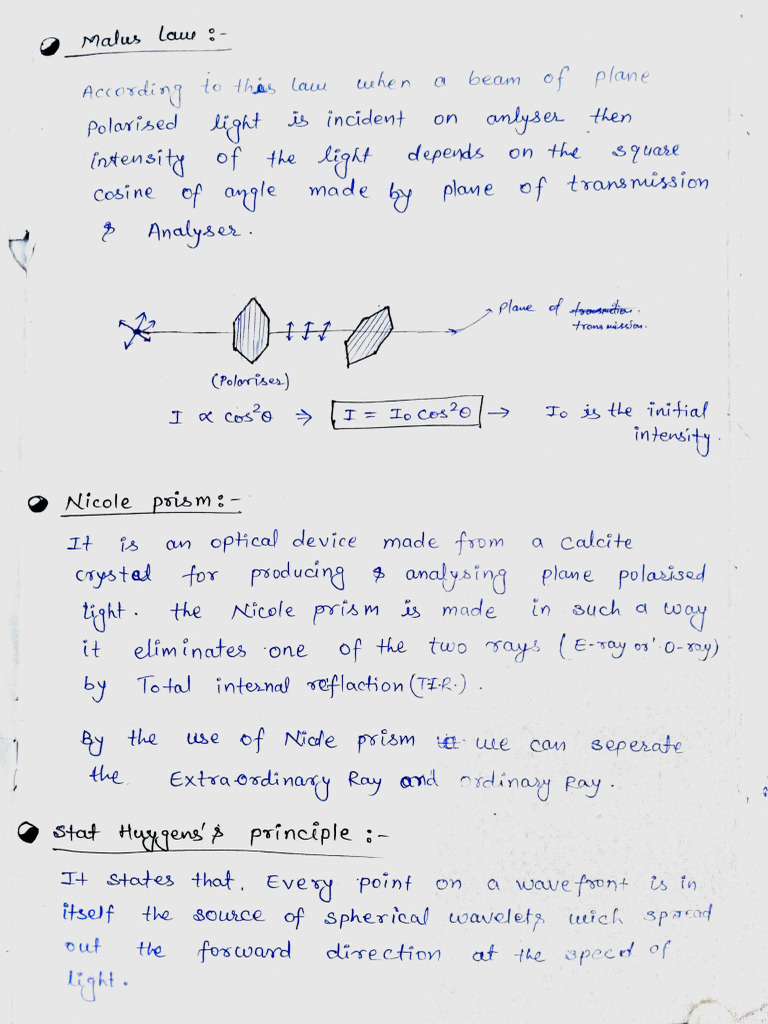 Malus Law :-
According to this law when a beam of plane
Polarised light is incident on anlyser then
intensity of the light depends on the square
cosine of angle made by plane of transmission
& Analyser.
Plane of
transmission.
(Polariser)
I ∝ cos²θ ⇒ I = I₀ cos²θ → I₀ is the initial
intensity.
Nicole prism :-
It is an optical device made from a calcite
crystal for producing & analysing plane polarised
light. the Nicole prism is made in such a way
it eliminates one of the two rays (E-ray or O-ray)
by Total internal reflaction (T.I.R.).
By the use of Nicole prism we can seperate
the Extraordinary Ray and ordinary Ray.
Stat Huygens's principle :-
It states that, Every point on a wavefront is in
itself the source of spherical wavelets wich spread
out the forward direction at the speed of
light.